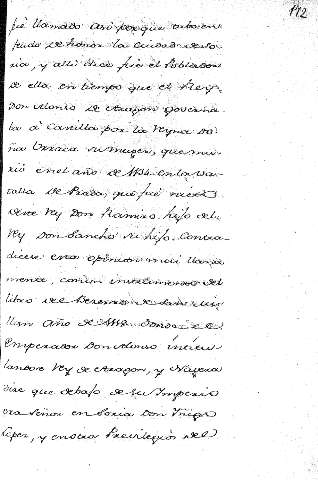 112
fue llamado asi porque tubo en
feudo de honor la ciudad de So-
ria, y alli dice fue el Poblador
de ella en tiempo que el Rey
Don Alonso de Aragon governa-
ba à Castilla por la Reyna Do-
ña Urraca su muger, que mu-
rio en el año de 1134. en la ba-
talla de Fraga, que fue nieto
de el Rey Don Ramiro hijo del
Rey Don Sancho su hijo. Contra-
dicese esta opinion mui llana
mente, con un instrumento del
libro de Becerro de San
Millan año de donde el
Emperador Don Alonso intitu
landose Rey de Aragon, y Nagera
dice que debajo de su Imperio
era Señor en Soria Don Yñigo
Lopez, y en otro Privilegio del